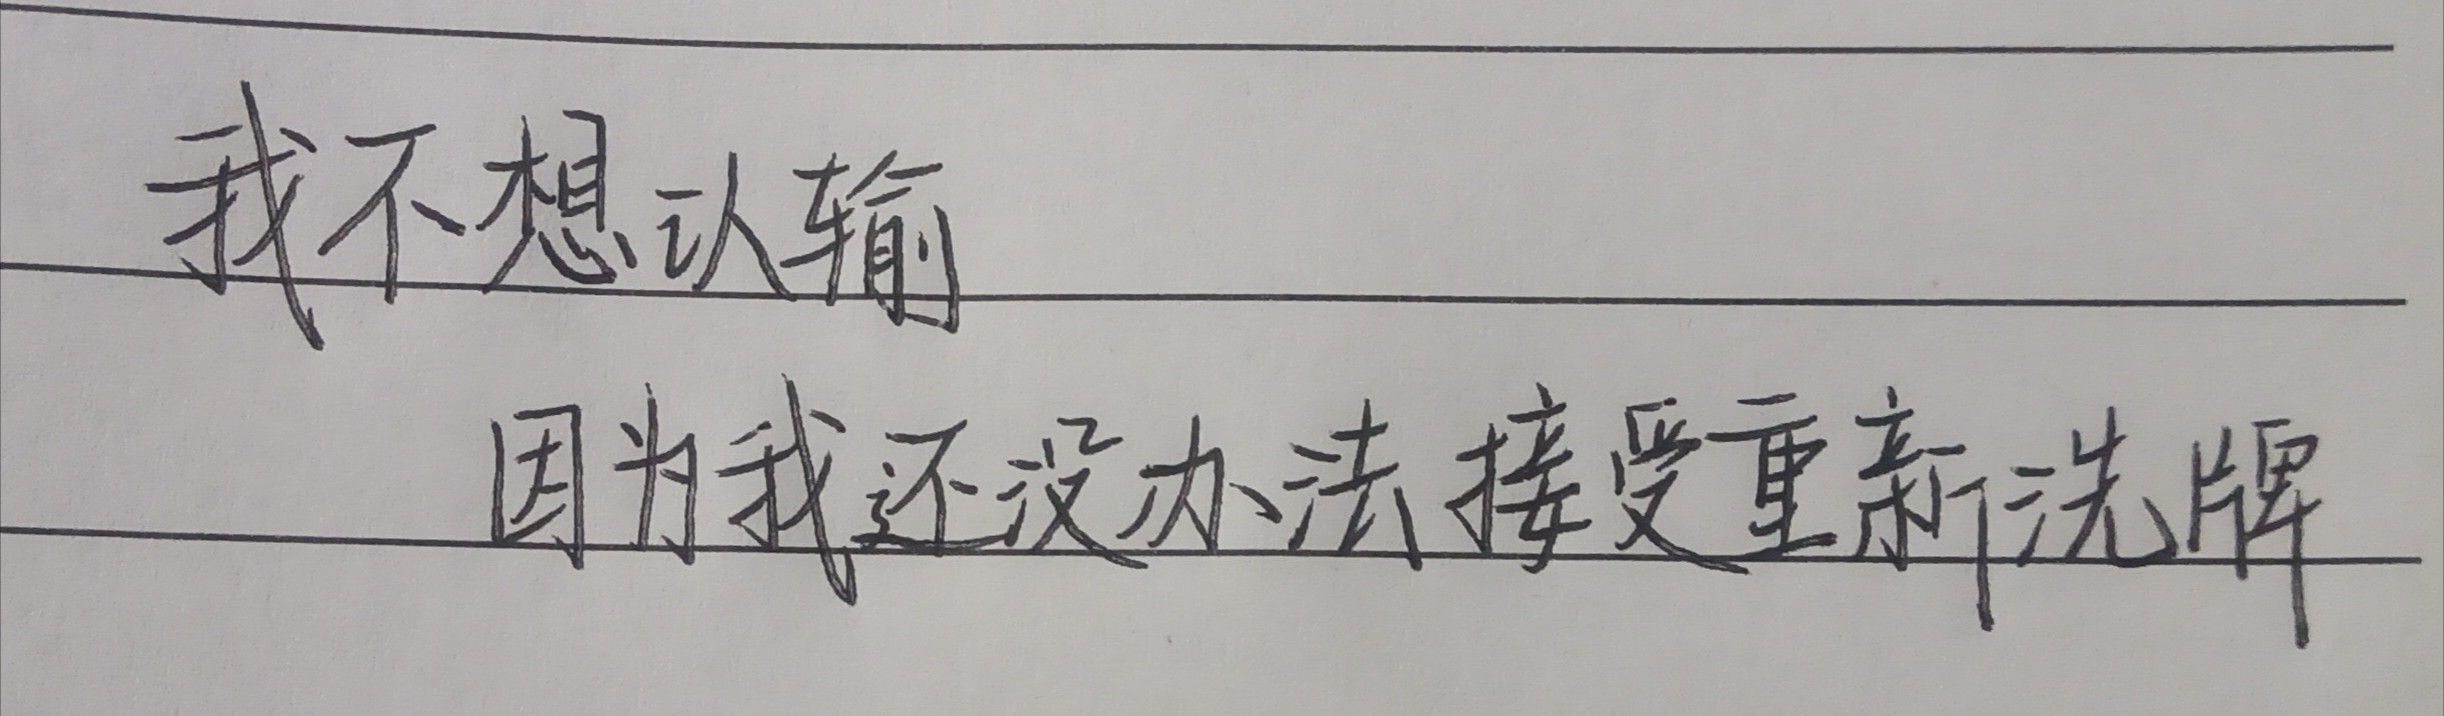 我不想认输
因为我还没办法接受重新洗牌